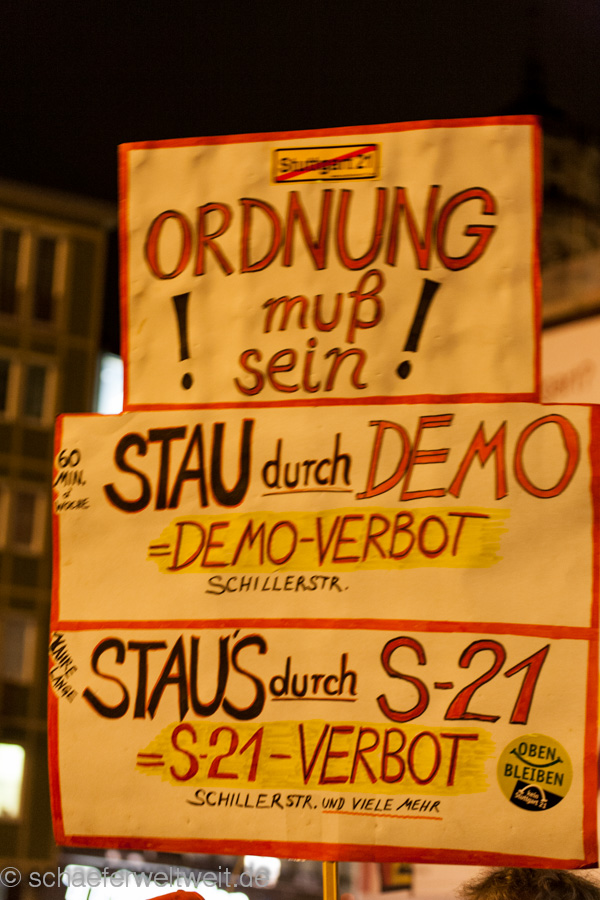 Stuttgart 21
ORDNUNG
! muß !
sein
60
MIN.
WOCHE
STAU durch DEMO
=DEMO-VERBOT
SCHILLERSTR.
JAHRE
LANGE
STAU'S durch S-21
=S-21-VERBOT
SCHILLERSTR. UND VIELE MEHR
OBEN
BLEIBEN
kein
Stuttgart 21
© schaeferweltweit.de